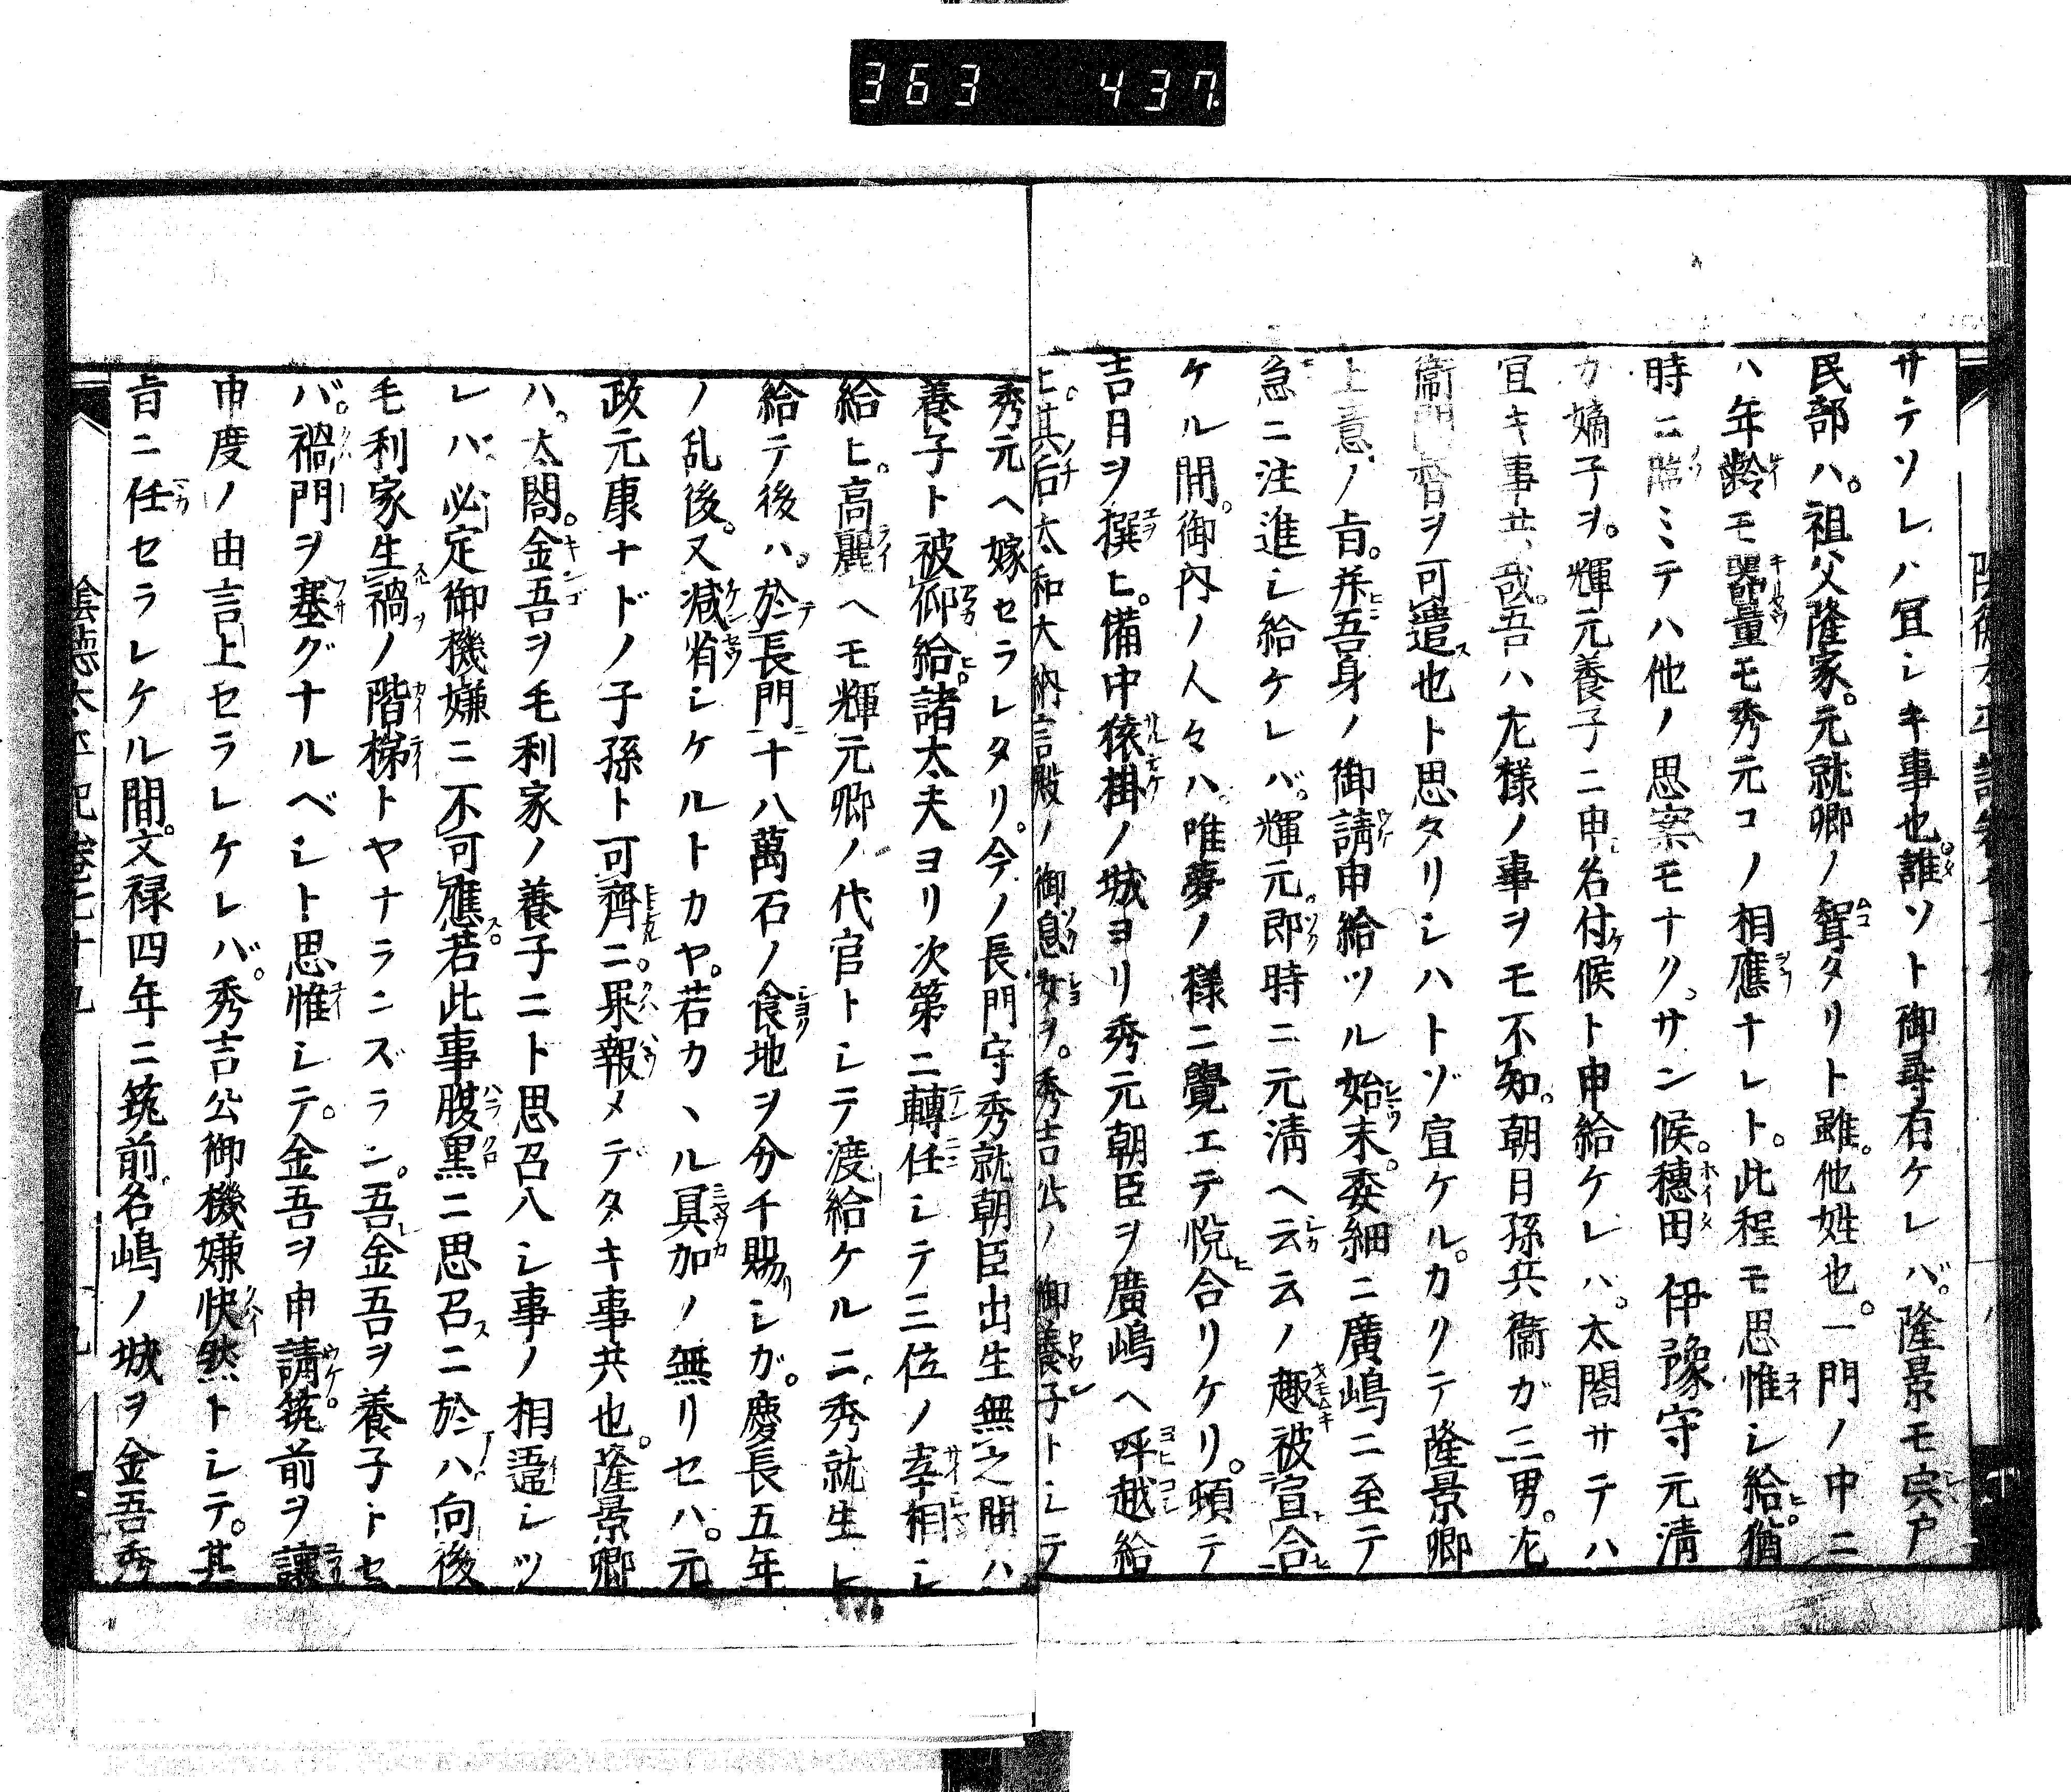 363 437.
サテソレハ冝シキ事也誰ソト御尋有ケレバ。隆景モ宍戸
民部ハ。祖父隆家。元就卿ノ聟タリト雖。他姓也。一門ノ中ニ
ハ年齢モ器量モ秀元コノ相應ナレト。此程モ思惟シ給ヒ。猶
時ニ臨ミテハ他ノ思案モナク。サン候。穗田伊豫守元清
カ嫡子ヲ。輝元養子ニ申名付候ト申給ケレハ。太閤サテハ
冝キ事共哉。吾ハ左様ノ事ヲモ不知。朝日孫兵衞ガ三男。左
衞門督ヲ可遣也ト思タリシハトゾ宣ケル。カリテ隆景卿
上意ノ旨。并吾身ノ御請申給ツル始末。委細ニ廣嶋ニ至テ
急ニ注進シ給ケレバ。輝元。即時ニ元清ヘ云云ノ趣被宣合
ケル間。御内ノ人々ハ。唯夢ノ様ニ覺エテ悦合リケリ。頓テ
吉日ヲ撰ヒ。備中猿掛ノ城ヨリ秀元朝臣ヲ廣嶋ヘ呼越給
ヒ。其后大和大納言殿ノ御息女ヲ。秀吉公ノ御養子トシテ
秀元ヘ嫁セラレタリ。今ノ長門守秀就朝臣出生無之間ハ
養子ト被仰給。諸太夫ヨリ次第ニ轉任シテ三位ノ宰相シ
給ヒ。高麗ヘモ輝元卿ノ代官トシテ渡給ケルニ秀就生ヒ
給テ後ハ。於長門十八萬石ノ食地ヲ分チ賜シガ。慶長五年
ノ乱後。又減省シケルトカヤ。若カヽル冥加ノ無リセハ。元
政元康ナドノ子孫ト可齊ニ。果報メデタキ事共也。隆景卿
ハ。太閤。金吾ヲ毛利家ノ養子ニト思召入シ事ノ相違シツ
レハ。必定御機嫌ニ不可應若此事腹黒ニ思召ニ於ハ向後
毛利家生禍ノ階梯トヤナランズラン。吾金吾ヲ養子トセ
バ。禍門ヲ塞グナルベシト思惟シテ。金吾ヲ申請。筑前ヲ讓
申度ノ由言上セラレケレバ。秀吉公御機嫌快然トシテ。其
旨ニ任セラレケル間。文禄四年ニ筑前名嶋ノ城ヲ金吾秀
陰徳太平記卷七十九